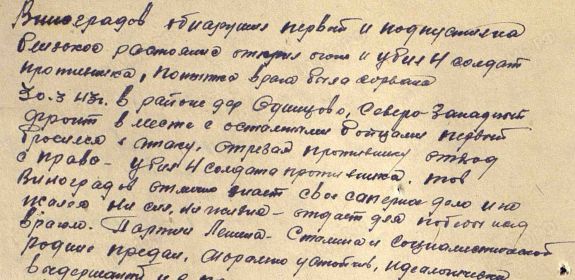 Виноградов обнаружил первый и подпустив на
близкое растояние открыл огонь и убил 4 солдат
противника, попытка врага была сорвана
30.3 43г. в районе дер Одинцово, Северо-Западный
фронт в месте с остальными бойцами первый
бросился в атаку, отрезая противнику отход
с право - убил 4 солдата противника. тов
Виноградов отлично знает свое саперное дело и не
жалея ни сил, ни жизни - отдает для победы над
врагом. Партии Ленина - Сталина и социалистической
родине предан, морально устойчив, идеологически
выдержанный